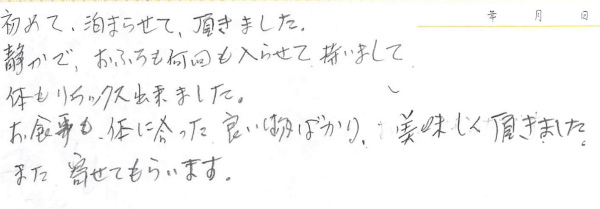 年 月 日
初めて、泊まらせて、頂きました。
静かで、おふろも何回も入らせて 頂いまして
体もリラックス出来ました。
お食事も、体に合った 良い物ばかり、美味しく頂きました。
また 寄せてもらいます。